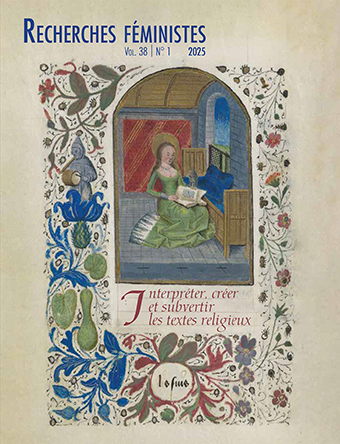 RECHERCHES FÉMINISTES
VOL. 38 | N° 1 2025
Interpréter, créer
et subvertir
les textes religieux